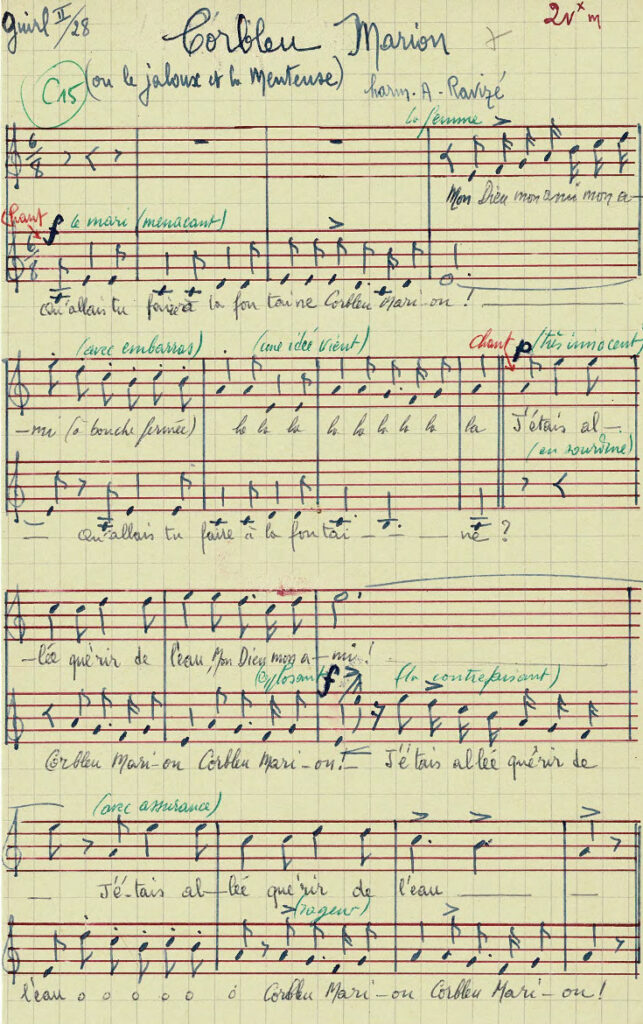 Guirl II/28
2v x m
Corbleu Marion
C15
(ou le jaloux et la Menteuse)
harm. A. Ravizé
la femme
Mon Dieu mon ami mon a-
Chant
f le mari (menaçant)
6/8
6/8
Qu'allais tu faire à la fon taine Corbleu Mari-on !
(avec embarras) (une idée vient) chant p (très innocent)
-mi (à bouche fermée) la la la la la la la la la la J'étais al-
(en sourdine)
Qu'allais tu faire à la fontai - - - ne ?
-lée quérir de l'eau, Mon Dieu mon a-mi !
(explosant) f (la contrefaisant)
Corbleu Mari-on Corbleu Mari-on! - J'étais allée quérir de
(avec assurance)
J'é-tais al-lée quérir de l'eau
(rageur)
l'eau o o o o o o Corbleu Mari-on Corbleu Mari-on !